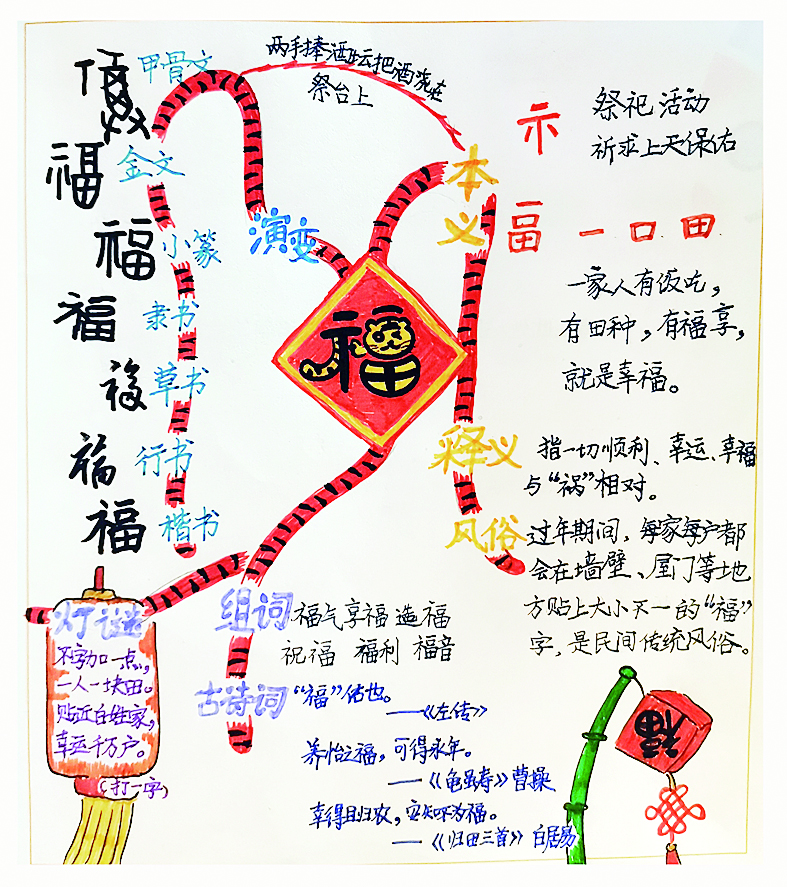 福
甲骨文
福
金文
福
小篆
福
隶书
福
草书
福
行书
福
楷书
演变
福
两手捧酒坛把酒浇在
祭台上
本义
示
祭祀活动
祈求上天保佑
畐 一 口 田
一家人有饭吃，
有田种，有福享，
就是幸福。
释义
指一切顺利、幸运、幸福
与“祸”相对。
风俗
过年期间，每家每户都
会在墙壁、屋门等地
方贴上大小不一的“福”
字，是民间传统风俗。
灯谜
不字加一点，
一人一块田。
贴近百姓家，
幸运千万户。
（打一字）
组词
福气 享福 造福
祝福 福利 福音
古诗词
“福”佑也。
——《左传》
养怡之福，可得永年。
——《龟虽寿》曹操
幸得且归农，安知不为福。
——《归田三首》白居易
福